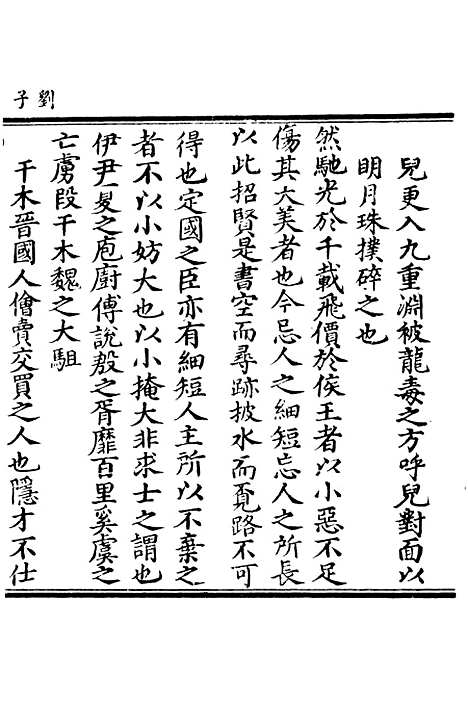 劉子
兒更入九重淵被龍毒之方呼兒對面以
明月珠撲碎之也
然馳光於千載飛價於侯王者以小惡不足
傷其大美者也今忌人之細短忘人之所長
以此招賢是書空而尋跡披水而覓路不可
得也定國之臣亦有細短人主所以不棄之
者不以小妨大也以小掩大非求士之謂也
伊尹夏之庖廚傅說殷之胥靡百里奚虞之
亡虜段干木魏之大駔
干木晉國人儈賣交買之人也隱才不仕